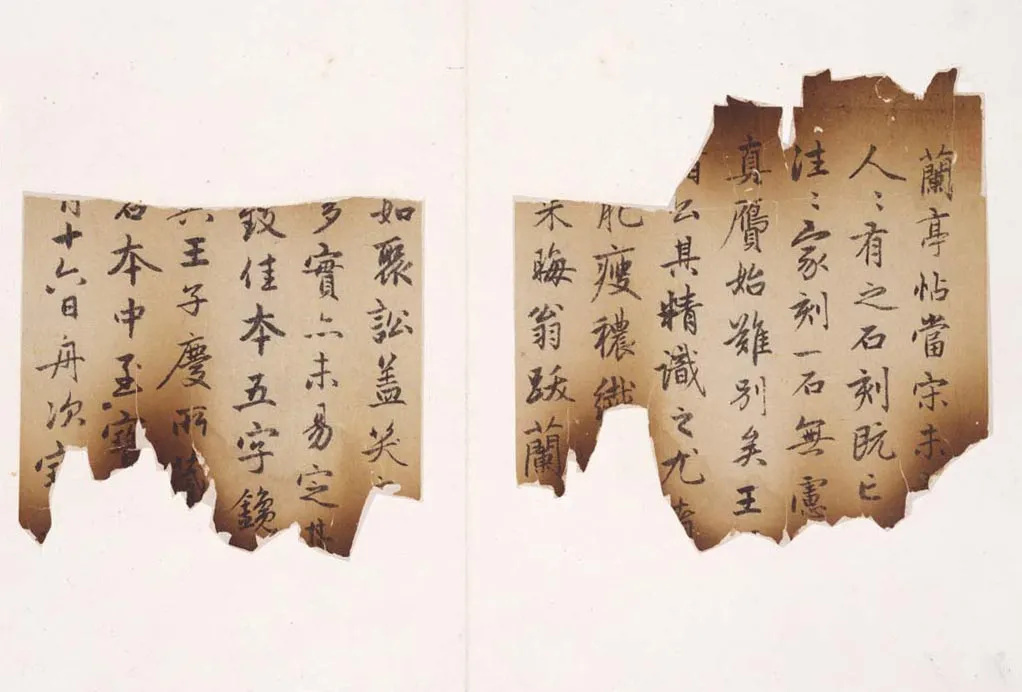 蘭亭帖當宋未
人〻有之石刻既亡
往〻家刻一石無慮
真贗始難別矣王
公其精識之尤
肥瘦穠纖
朱晦翁跋蘭
如聚訟蓋笑
多實亦未易定
致佳本五字鑱
王子慶所
本中至寶
十六日舟次